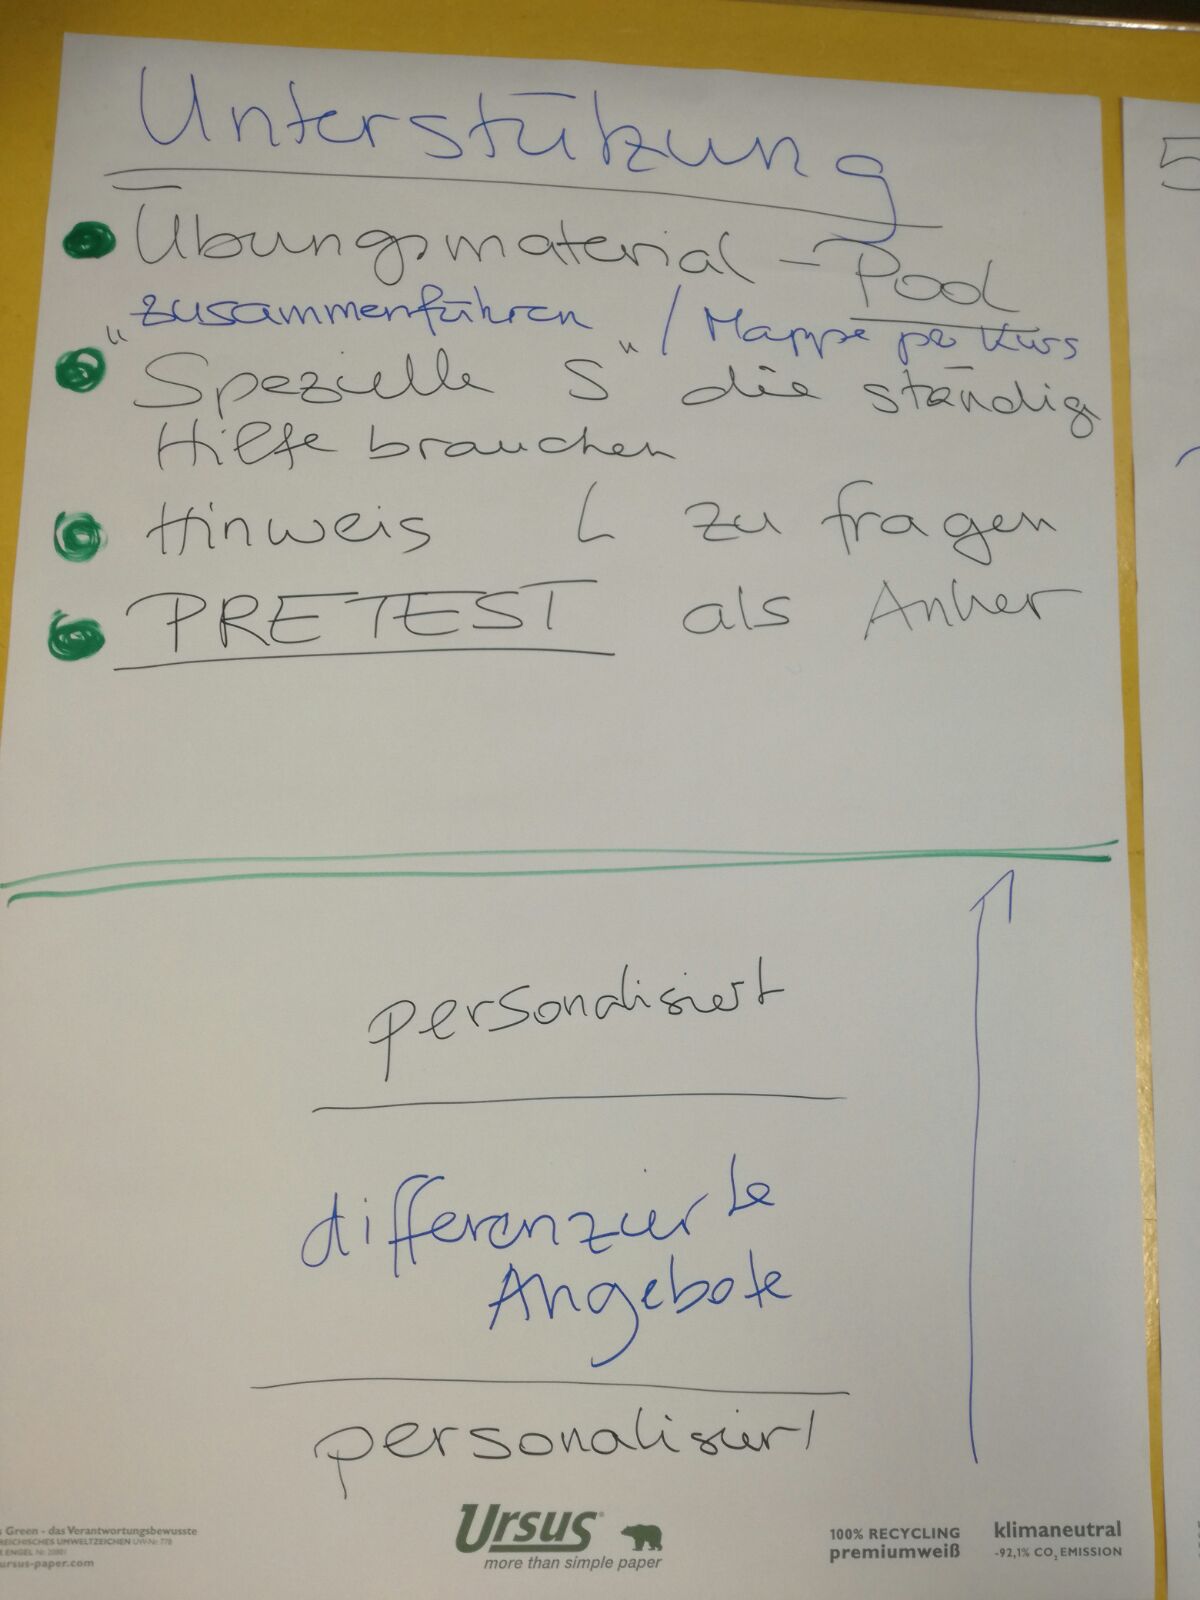 Unterstützung
Übungsmaterial - Pool
"zusammenführen" / Mappe pro Kurs
Spezielle S die ständig
Hilfe brauchen
Hinweis L zu fragen
PRETEST als Anker
personalisiert
differenzierte
Angebote
personalisiert
Green - das Verantwortungsbewusste
REICHISCHES UMWELTZEICHEN UW-Nr. 778
ENGEL Nr. 20801
ursus-paper.com
Ursus
more than simple paper
100% RECYCLING
premiumweiß
klimaneutral
-92,1% CO₂EMISSION
5